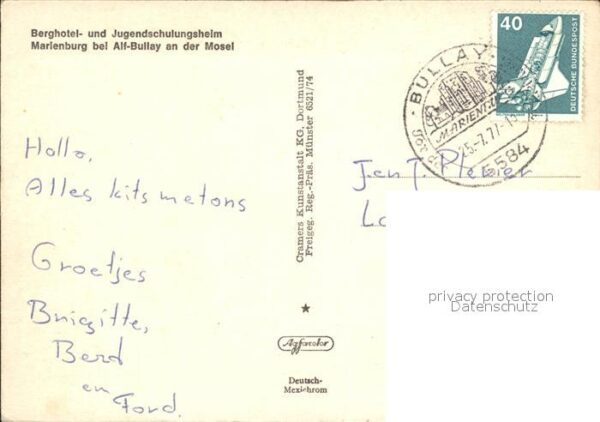 Berghotel- und Jugendschulungsheim
Marienburg bei Alf-Bullay an der Mosel
Hollo,
Alles kits metons
Groetjes
Brigitte,
Berd
en
Ford.
Cramers Kunstanstalt KG. Dortmund
Freigeg. Reg.-Präs. Münster 6521/74
Agfacolor
Deutsch-
Mexichrom
40
DEUTSCHE BUNDESPOST
BULLAY
MARIENBURG
25.-7.77-15
5584
Jan J.
privacy protection
Datenschutz